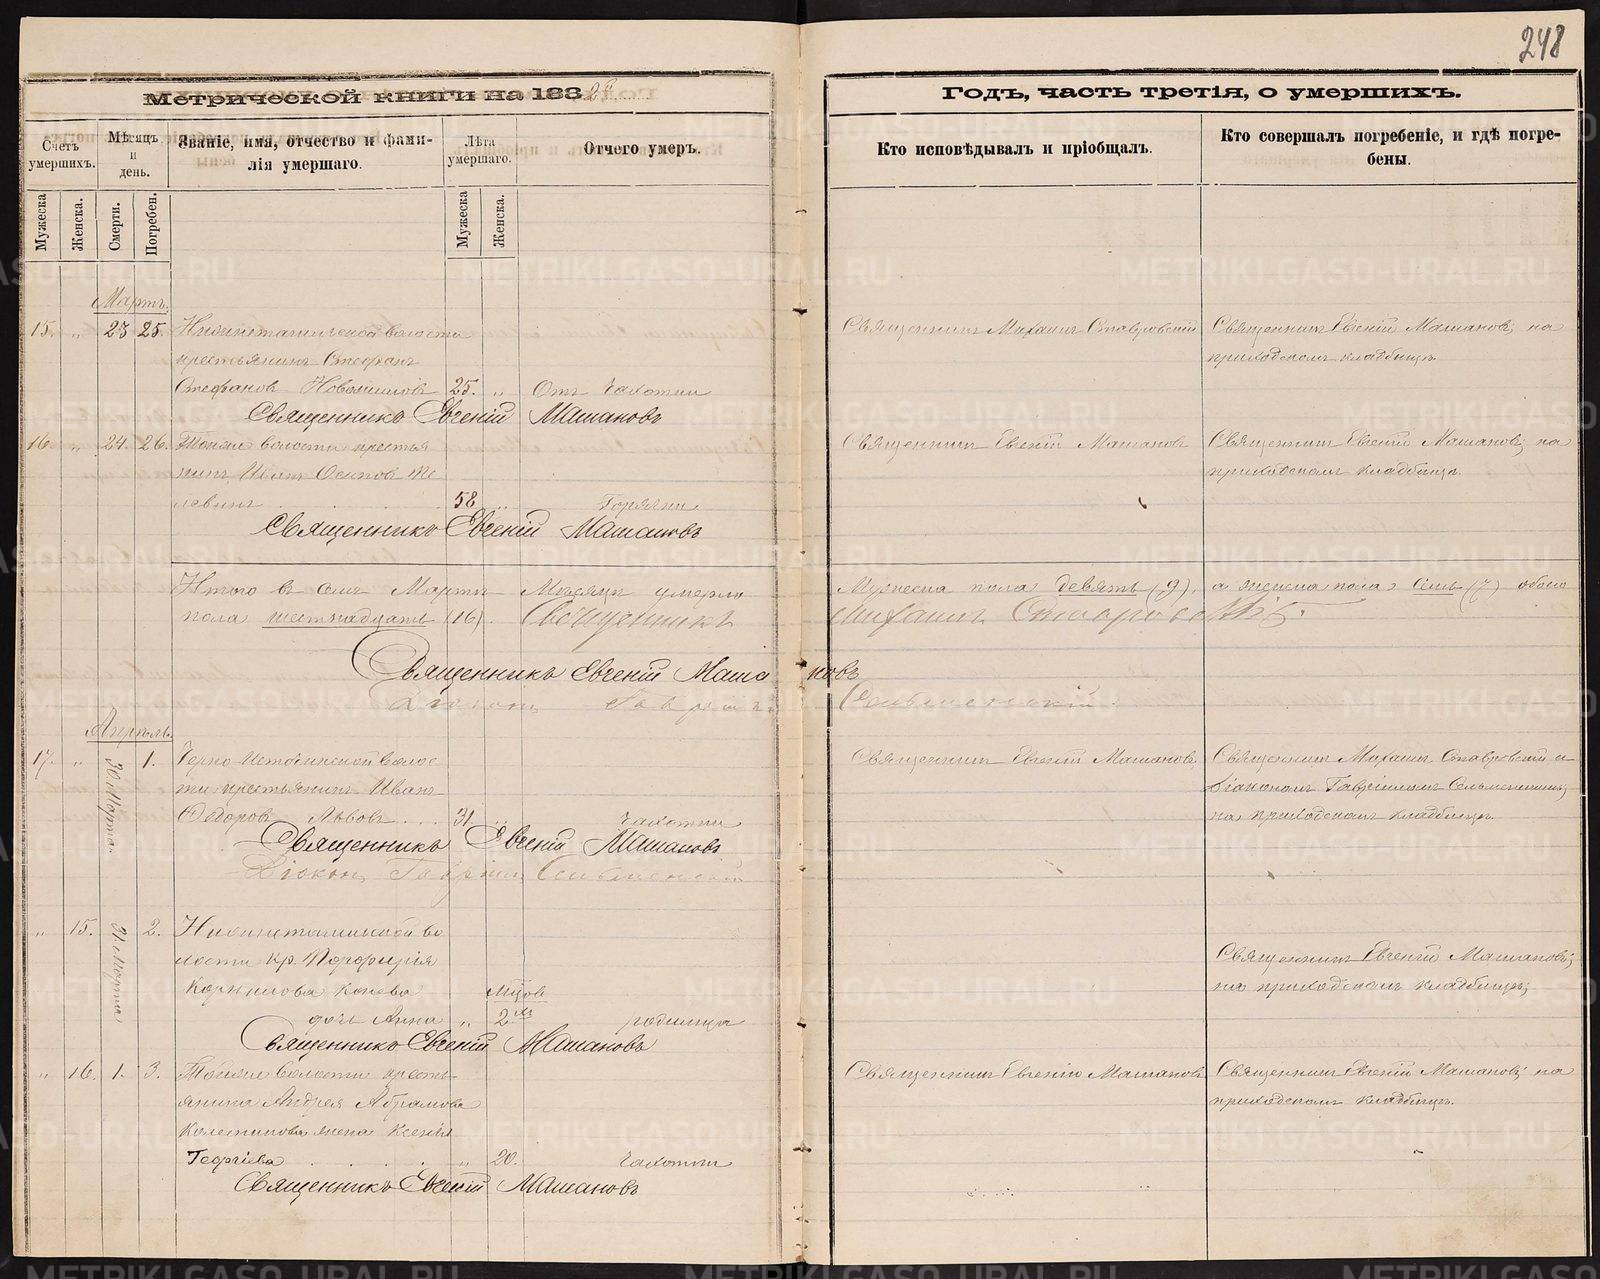 248
Метрической книги на 188
Годъ, часть третія, о умершихъ.
Счетъ умершихъ.
Мѣсяцъ и день.
Званіе, имя, отчество и фами-
лія умершаго.
Лѣта умершаго.
Отчего умеръ.
Кто исповѣдывалъ и пріобщалъ.
Кто совершалъ погребеніе, и гдѣ погре-
бены.
Мужеска
Женска.
Смерти.
Погребен.
Мужеска
Женска.
Мартъ.
15. „ 23 25. волости
крестьянинъ Стефанъ
Стефановъ 25. „ Отъ Чахотки
Священникъ Михаилъ Ставровскій
Священникъ Евгеній Машановъ, на
приходскомъ кладбищѣ
Священникъ Евгеній Машановъ
16. „ 24. 26. волости крестья
нинъ Иванъ Осиповъ
58 „ Горячки
Священникъ Евгеній Машановъ
Священникъ Евгеній Машановъ, на
приходскомъ кладбищѣ.
Священникъ Евгеній Машановъ
Итого въ семъ Мартѣ Мѣсяцѣ умерло
Мужеска пола девять (9), а женска пола семь (7) обоего
пола шестнадцать (16). Священникъ
Михаилъ Ставровскій
Священникъ Евгеній Машановъ
Діаконъ Гавріилъ
Апрѣль.
17. „ 30 Марта. 1. Черно-Источинской волос
ти крестьянинъ Иванъ
Ѳедоровъ Львовъ 31. „ Чахотки
Священникъ Евгеній Машановъ
Священникъ Михаилъ Ставровскій и
діакономъ Гавріиломъ
на приходскомъ кладбищѣ
Священникъ Евгеній Машановъ
Діаконъ Гавріилъ
„ 15. 31 Марта 2. во
лости кр. Порфирія
Корнилова Конева Мѣсяц.
дочь Анна „ 2 родимца
Священникъ Евгеній Машановъ,
на приходскомъ кладбищѣ;
Священникъ Евгеній Машановъ
„ 16. 1. 3. волости кресть-
янина Андрея Абрамова
жена Ксенія
Георгіева „ 20. Чахотки
Священникъ Евгеній Машановъ
Священникъ Евгеній Машановъ, на
приходскомъ кладбищѣ.
Священникъ Евгеній Машановъ
METRIKI.GASO-URAL.RU